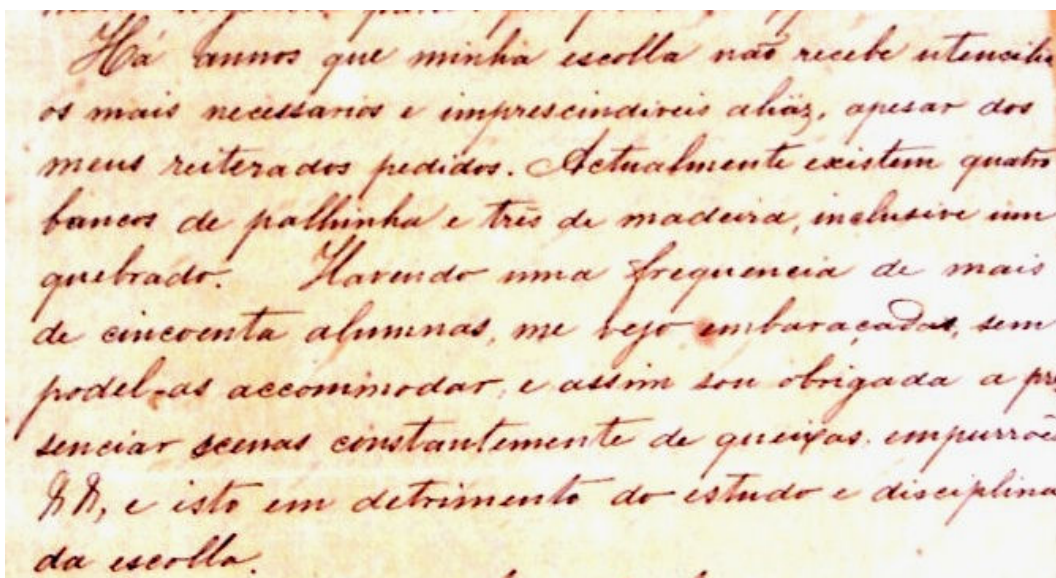 Há annos que minha escolla não recebe utencili
os mais necessarios e imprescindiveis aliáz, apesar dos
meus reiterados pedidos. Actualmente existem quatro
bancos de palhinha e trés de madeira, inclusive um
quebrado. Havendo uma frequencia de mais
de cincoenta alumnas, me vejo embaraçadas, sem
podel-as accommodar, e assim sou obrigada a pre
senciar scenas constantemente de queixas, empurrões
&&, e isto em detrimento do estudo e disciplina
da escolla.